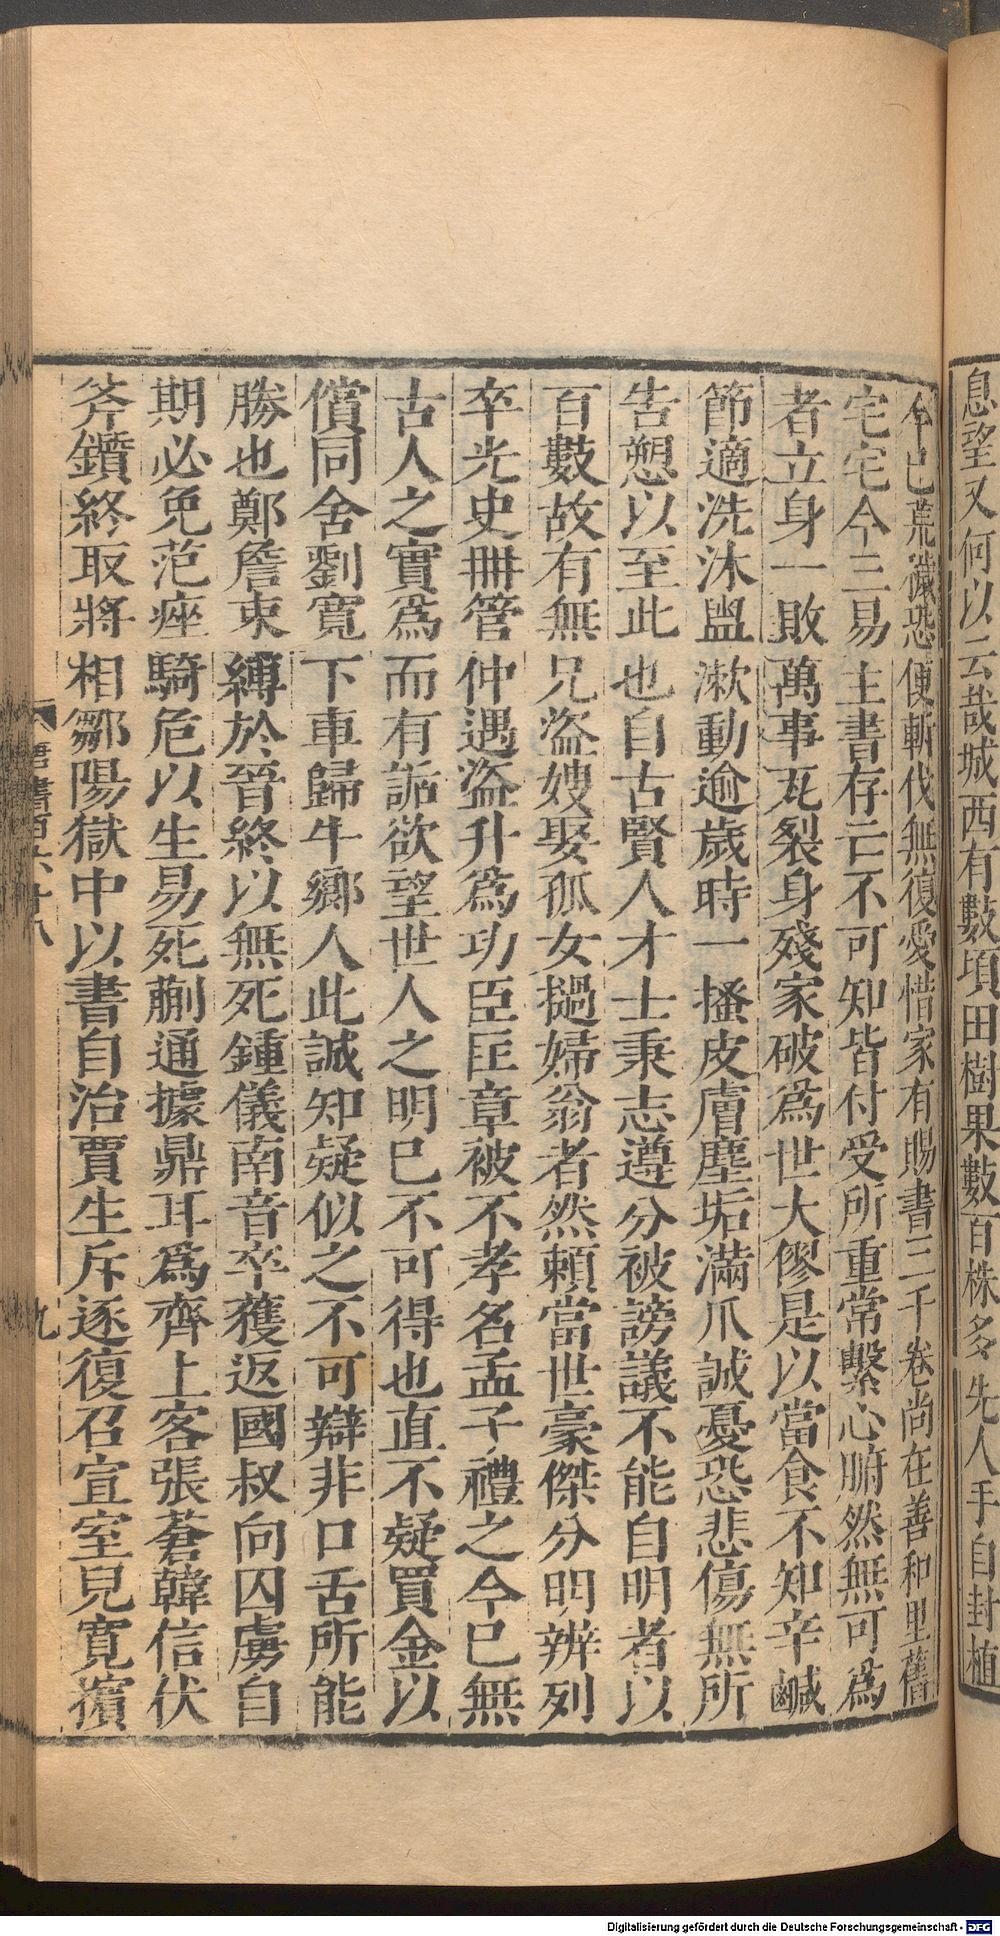 息望又何以云哉城西有數頃田樹果數百株多先人手自封植
今已荒穢恐便斬伐無復愛惜家有賜書三千卷尚在善和里舊
宅宅今三易主書存亡不可知皆付受所重常繫心腑然無可爲
者立身一敗萬事瓦裂身殘家破爲世大僇是以當食不知辛鹹
節適洗沐盥漱動逾歲時一搔皮膚塵垢滿爪誠憂恐悲傷無所
告愬以至此也自古賢人才士秉志遵分被謗議不能自明者以
百數故有無兄盜嫂娶孤女撾婦翁者然賴當世豪傑分明辨列
卒光史冊管仲遇盜升爲功臣匡章被不孝名孟子禮之今已無
古人之實爲而有詬欲望世人之明已不可得也直不疑買金以
償同舍劉寬下車歸牛鄉人此誠知疑似之不可辯非口舌所能
勝也鄭詹束縛於晉終以無死鍾儀南音卒獲返國叔向囚虜自
期必免范痤騎危以生易死蒯通據鼎耳爲齊上客張蒼韓信伏
斧鑕終取將相鄒陽獄中以書自治賈生斥逐復召宣室兒寬擯
唐書百六十八
九
Digitalisierung gefördert durch die Deutsche Forschungsgemeinschaft - DFG